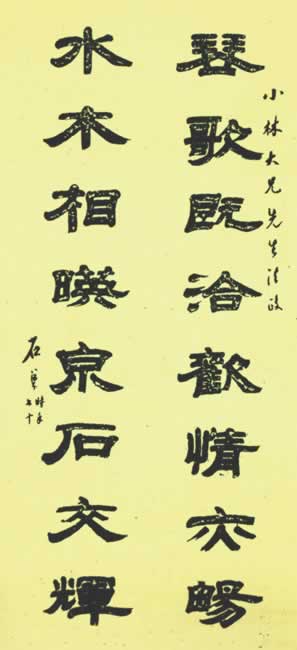 小林大兄先生法政
琴歌既洽歡情亦暢
水木相暎泉石交輝
石時年七十